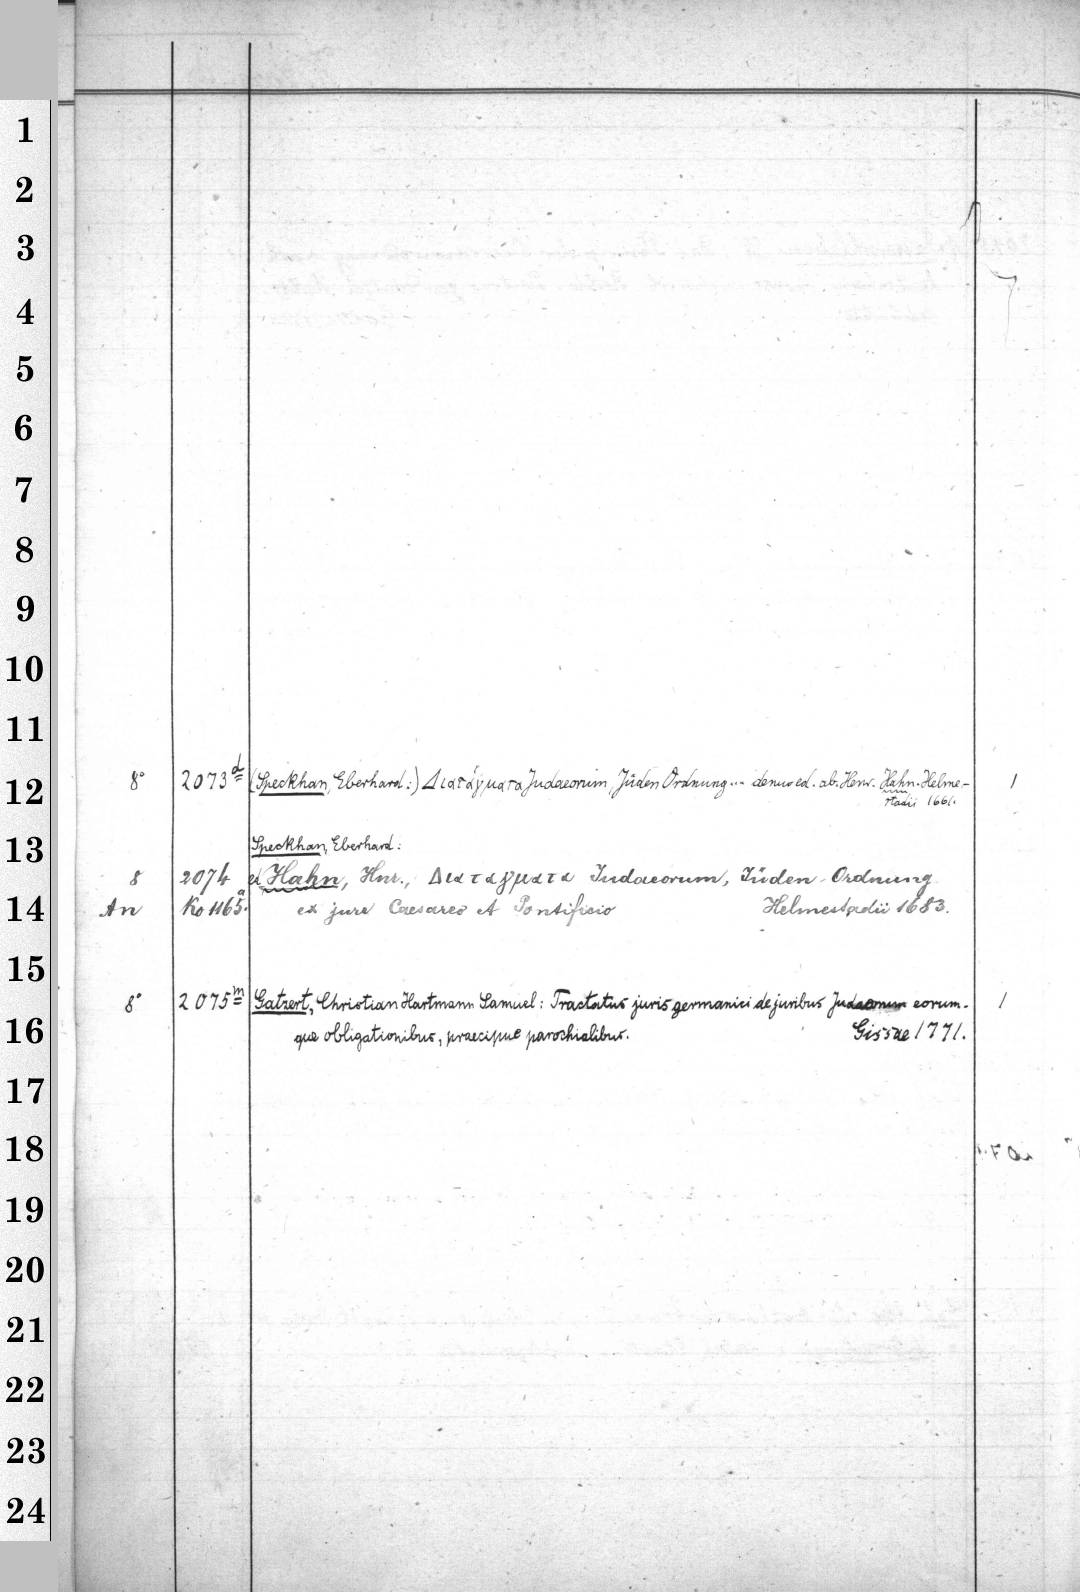 1
2
3
4
5
6
7
8
9
10
11
12
13
14
15
16
17
18
19
20
21
22
23
24
8° 2073 d (Speckhan, Eberhard:) Διατάγματα Judaeorum, Jüden Ordnung... denuo ed. ab. Henr. Hahn. Helme- 1
stadii 1661.
Speckhan, Eberhard:
8 2074 ed Hahn, Hnr., Διαταγματα Iudaeorum, Jüden-Ordnung
An Ko 1165.a ex jure Caesareo et Pontificio Helmestadii 1683.
8° 2075 m Gatzert, Christian Hartmann Samuel: Tractatus juris germanici de juribus Judaeorum eorum- 1
que obligationibus, praecipue parochialibus. Gissae 1771.